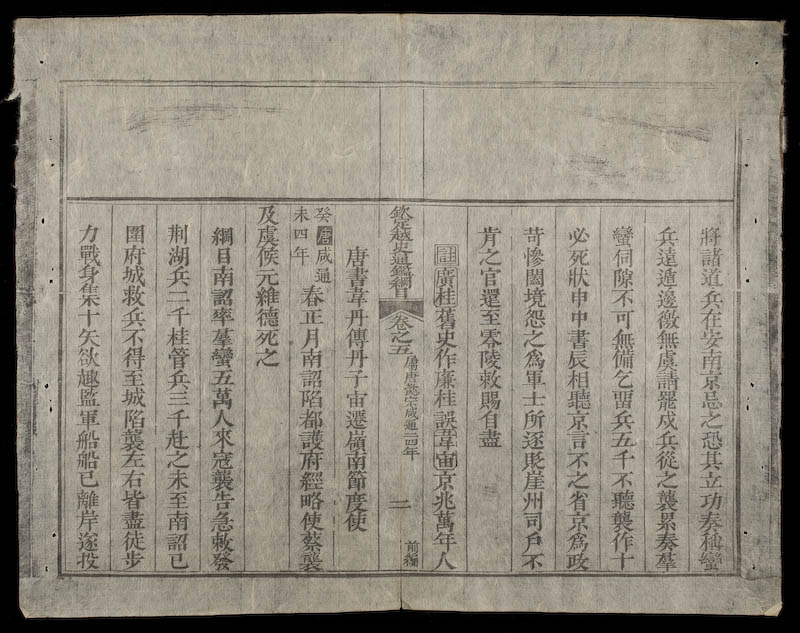 將諸道兵在安南京忌之恐其立功奏稱蠻
兵遠遁邊徼無虞請罷戍兵從之襲累奏羣
蠻伺隙不可無備乞畱兵五千不聽襲作十
必死狀申中書辰相聽京言不之省京爲政
苛慘闔境怨之爲軍士所逐貶崖州司戶不
肯之官還至零陵敕賜自盡
註廣桂舊史作廉桂誤韋宙京兆萬年人
欽定越史通鑑綱目 卷之五 屬唐懿宗咸通三四年 二 前編
唐書韋丹傳丹子宙遷嶺南節度使
癸未唐咸通四年春正月南詔陷都護府經略使蔡襲
及虞候元維德死之
綱目南詔率羣蠻五萬人來寇襲告急敕發
荆湖兵二千桂管兵三千赴之未至南詔已
圍府城救兵不得至城陷襲左右皆盡徒步
力戰身集十矢欲趣監軍船船已離岸遂投